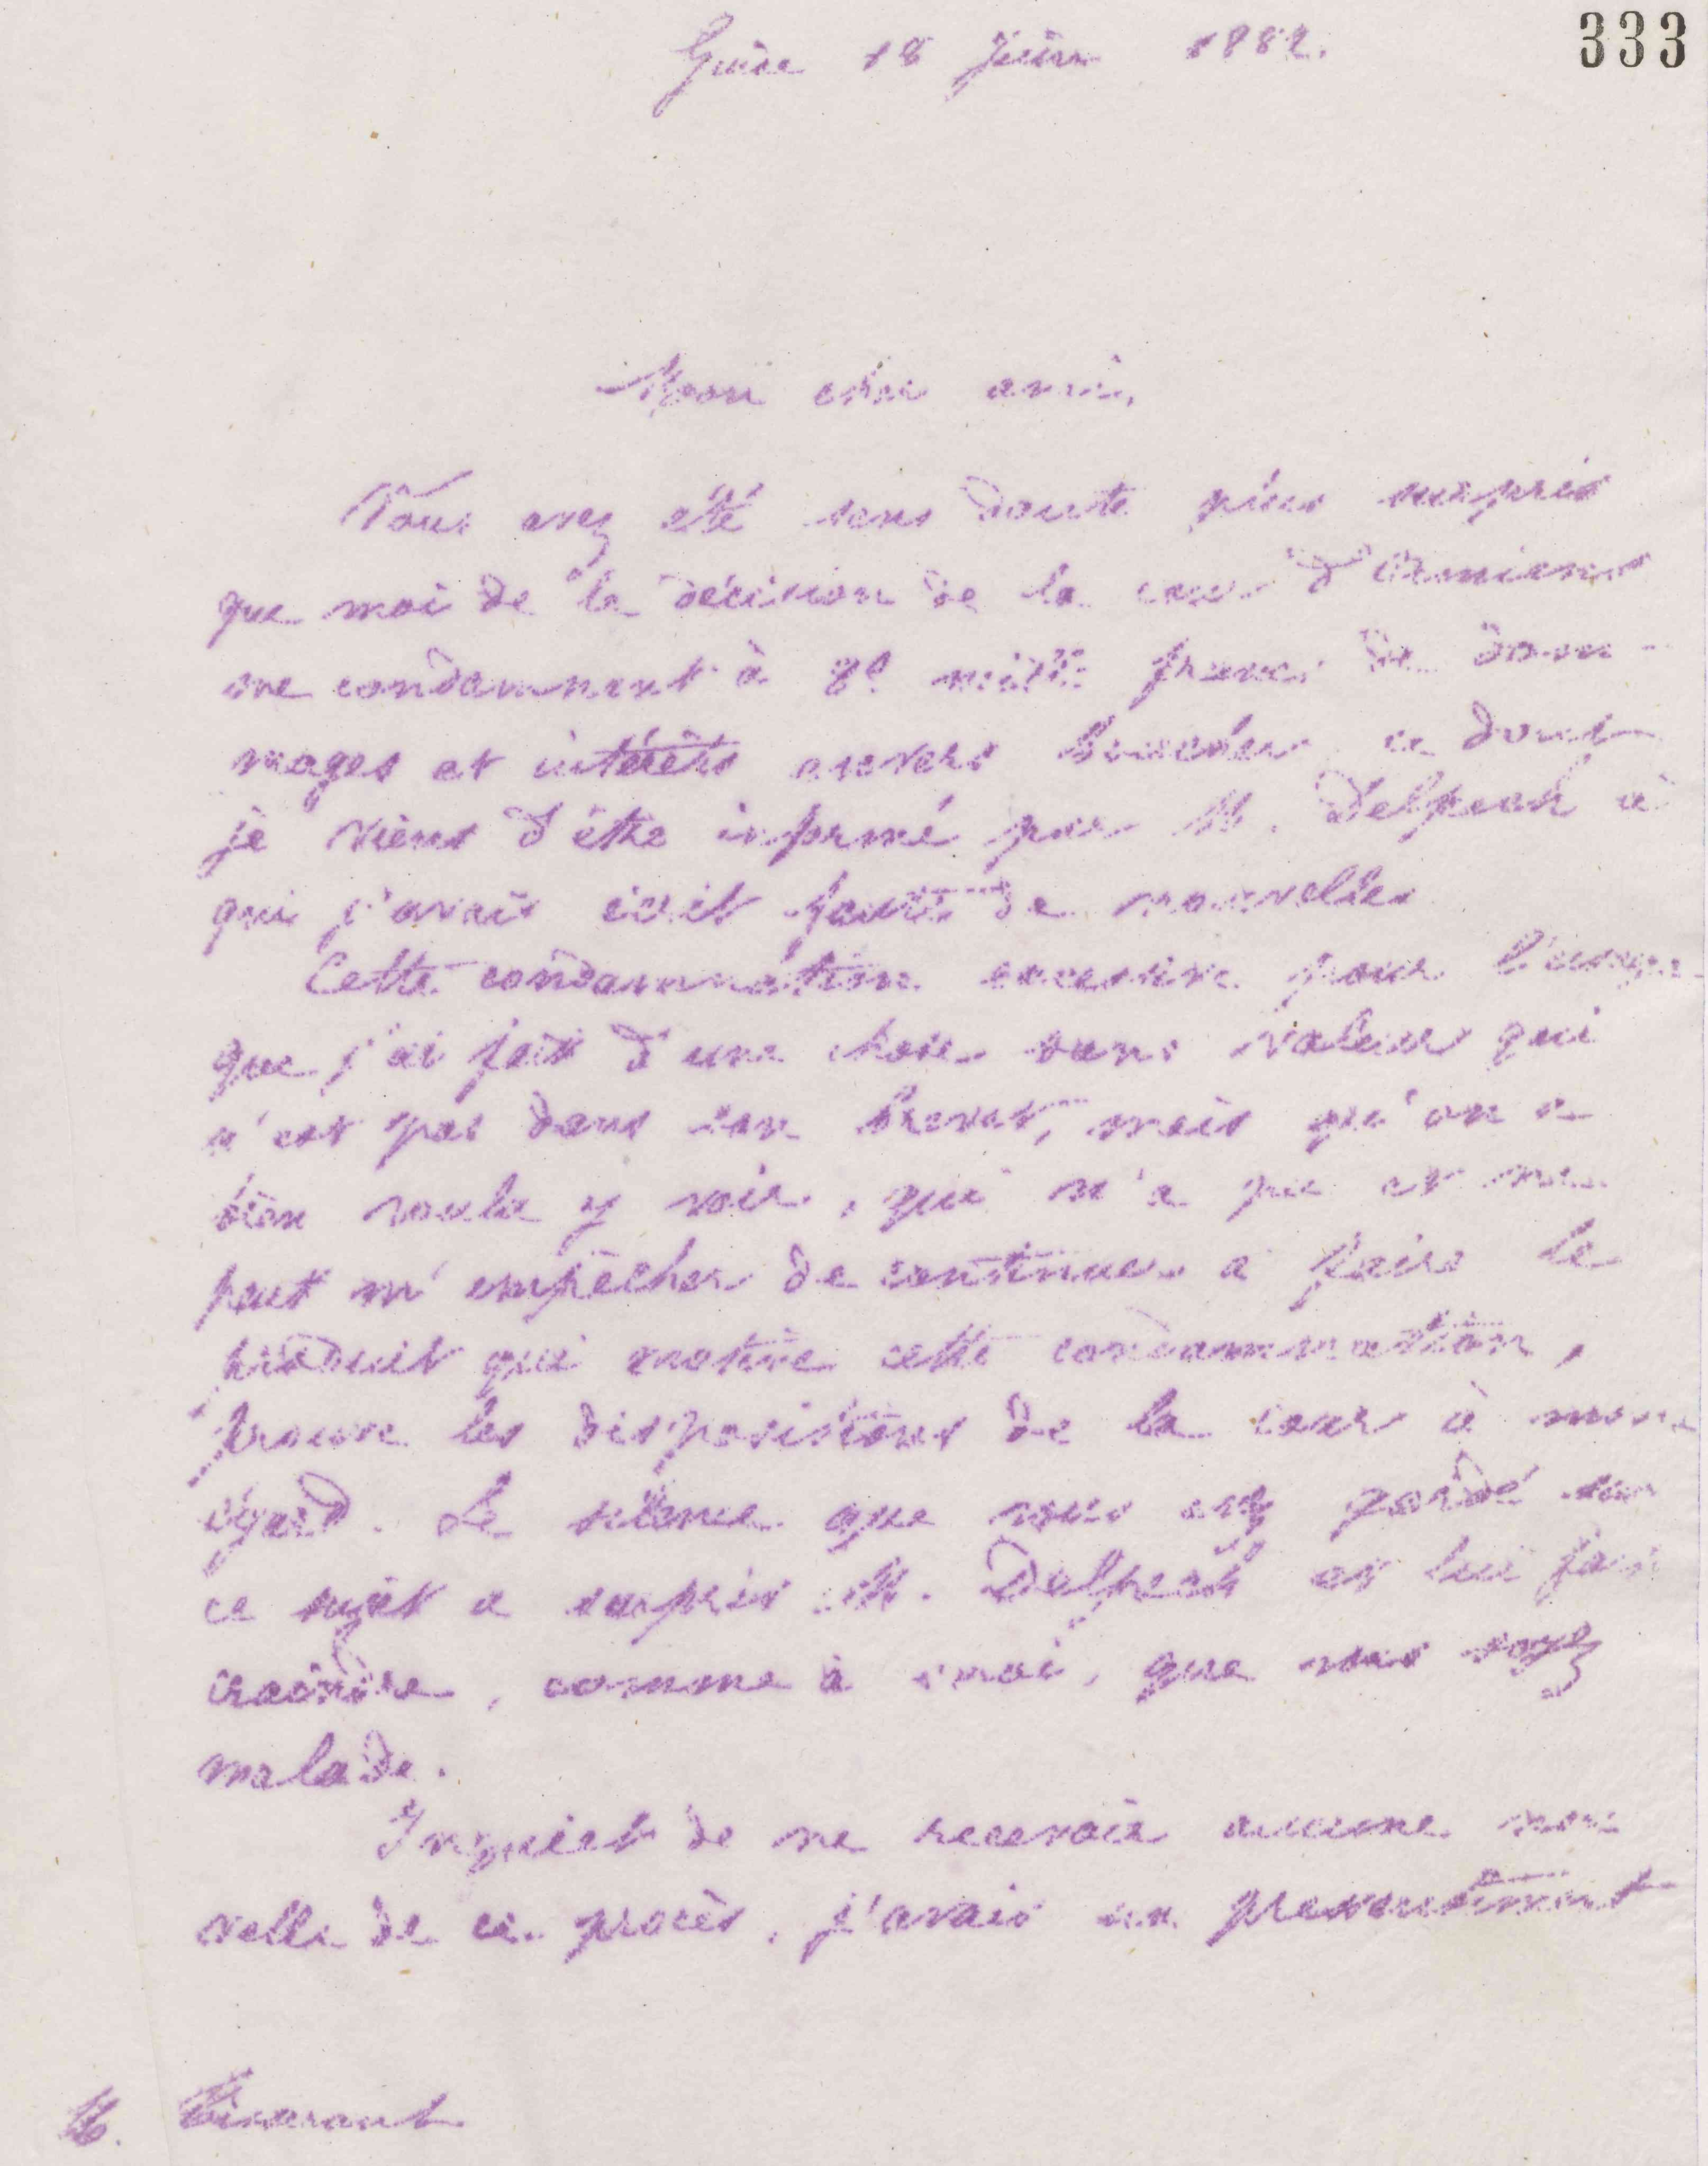 333
Guise 18 Juin 1882.
Mon cher ami,
Vous avez été sans doute plus surpris
que moi de la décision de la cour d'Amiens
me condamnant à mille francs de dom-
mages et intérêts envers ce dont
je viens d'être informé par M. Delpech à
qui j'avais écrit faute de nouvelles
Cette condamnation excessive pour l'usage
que j'ai fait d'une chose sans valeur qui
n'est pas dans son brevet, mais qu'on a
bien voulu y voir, qui n'a pu et ne
peut m'empêcher de continuer à faire le
produit qui motive cette condamnation,
prouve les dispositions de la cour à mon
égard. Le silence que vous avez gardé sur
ce sujet a surpris M. Delpech et lui fait
craindre, comme à moi, que vous soyez
malade.
Inquiet de ne recevoir aucune nou
velle de ce procès, j'avais un pressentiment
M.